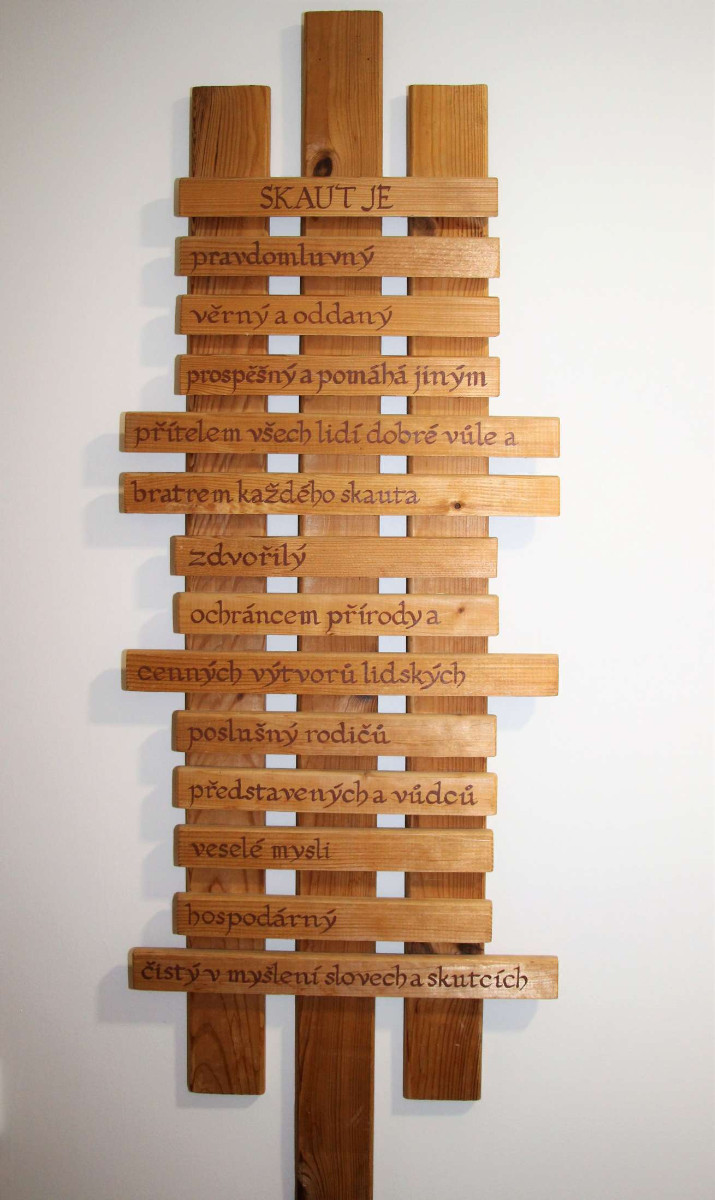 SKAUT JE
pravdomluvný
věrný a oddaný
prospěšný a pomáhá jiným
přítelem všech lidí dobré vůle a
bratrem každého skauta
zdvořilý
ochráncem přírody a
cenných výtvorů lidských
poslušný rodičů
představených a vůdců
veselé mysli
hospodárný
čistý v myšlení slovech a skutcích